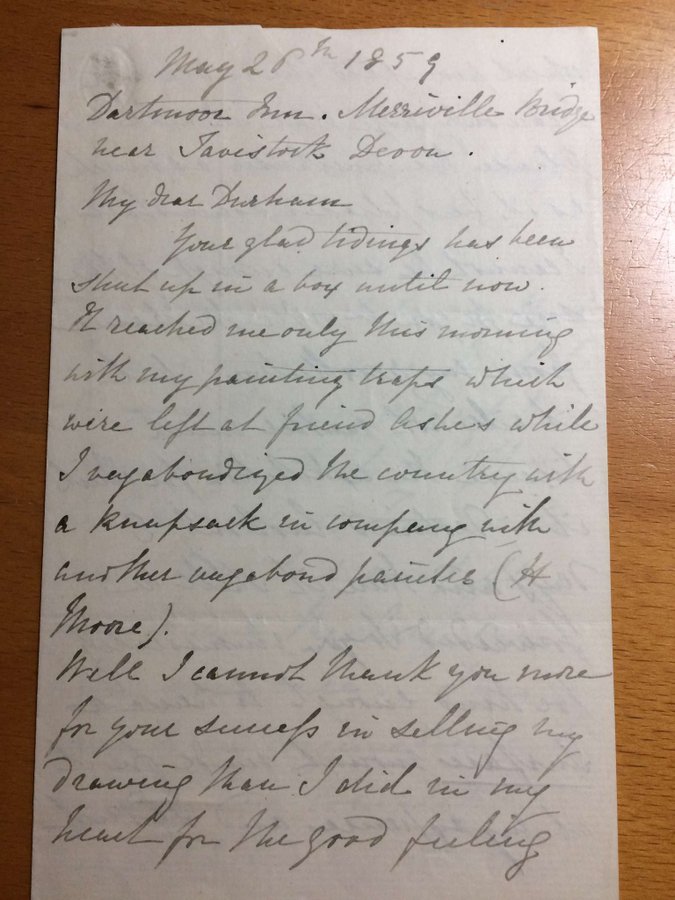 May 26th 1859
Dartmoor Inn. Merriville Bridge
near Tavistock Devon.
My dear Durham
Your glad tidings has been
shut up in a box until now.
It reached me only this morning
with my painting traps which
were left at friend Ashes while
I vagabondized the country with
a knapsack in company with
another vagabond painter (H
Moore).
Well I cannot thank you more
for your success in selling my
drawing than I did in my
heart for the good feeling